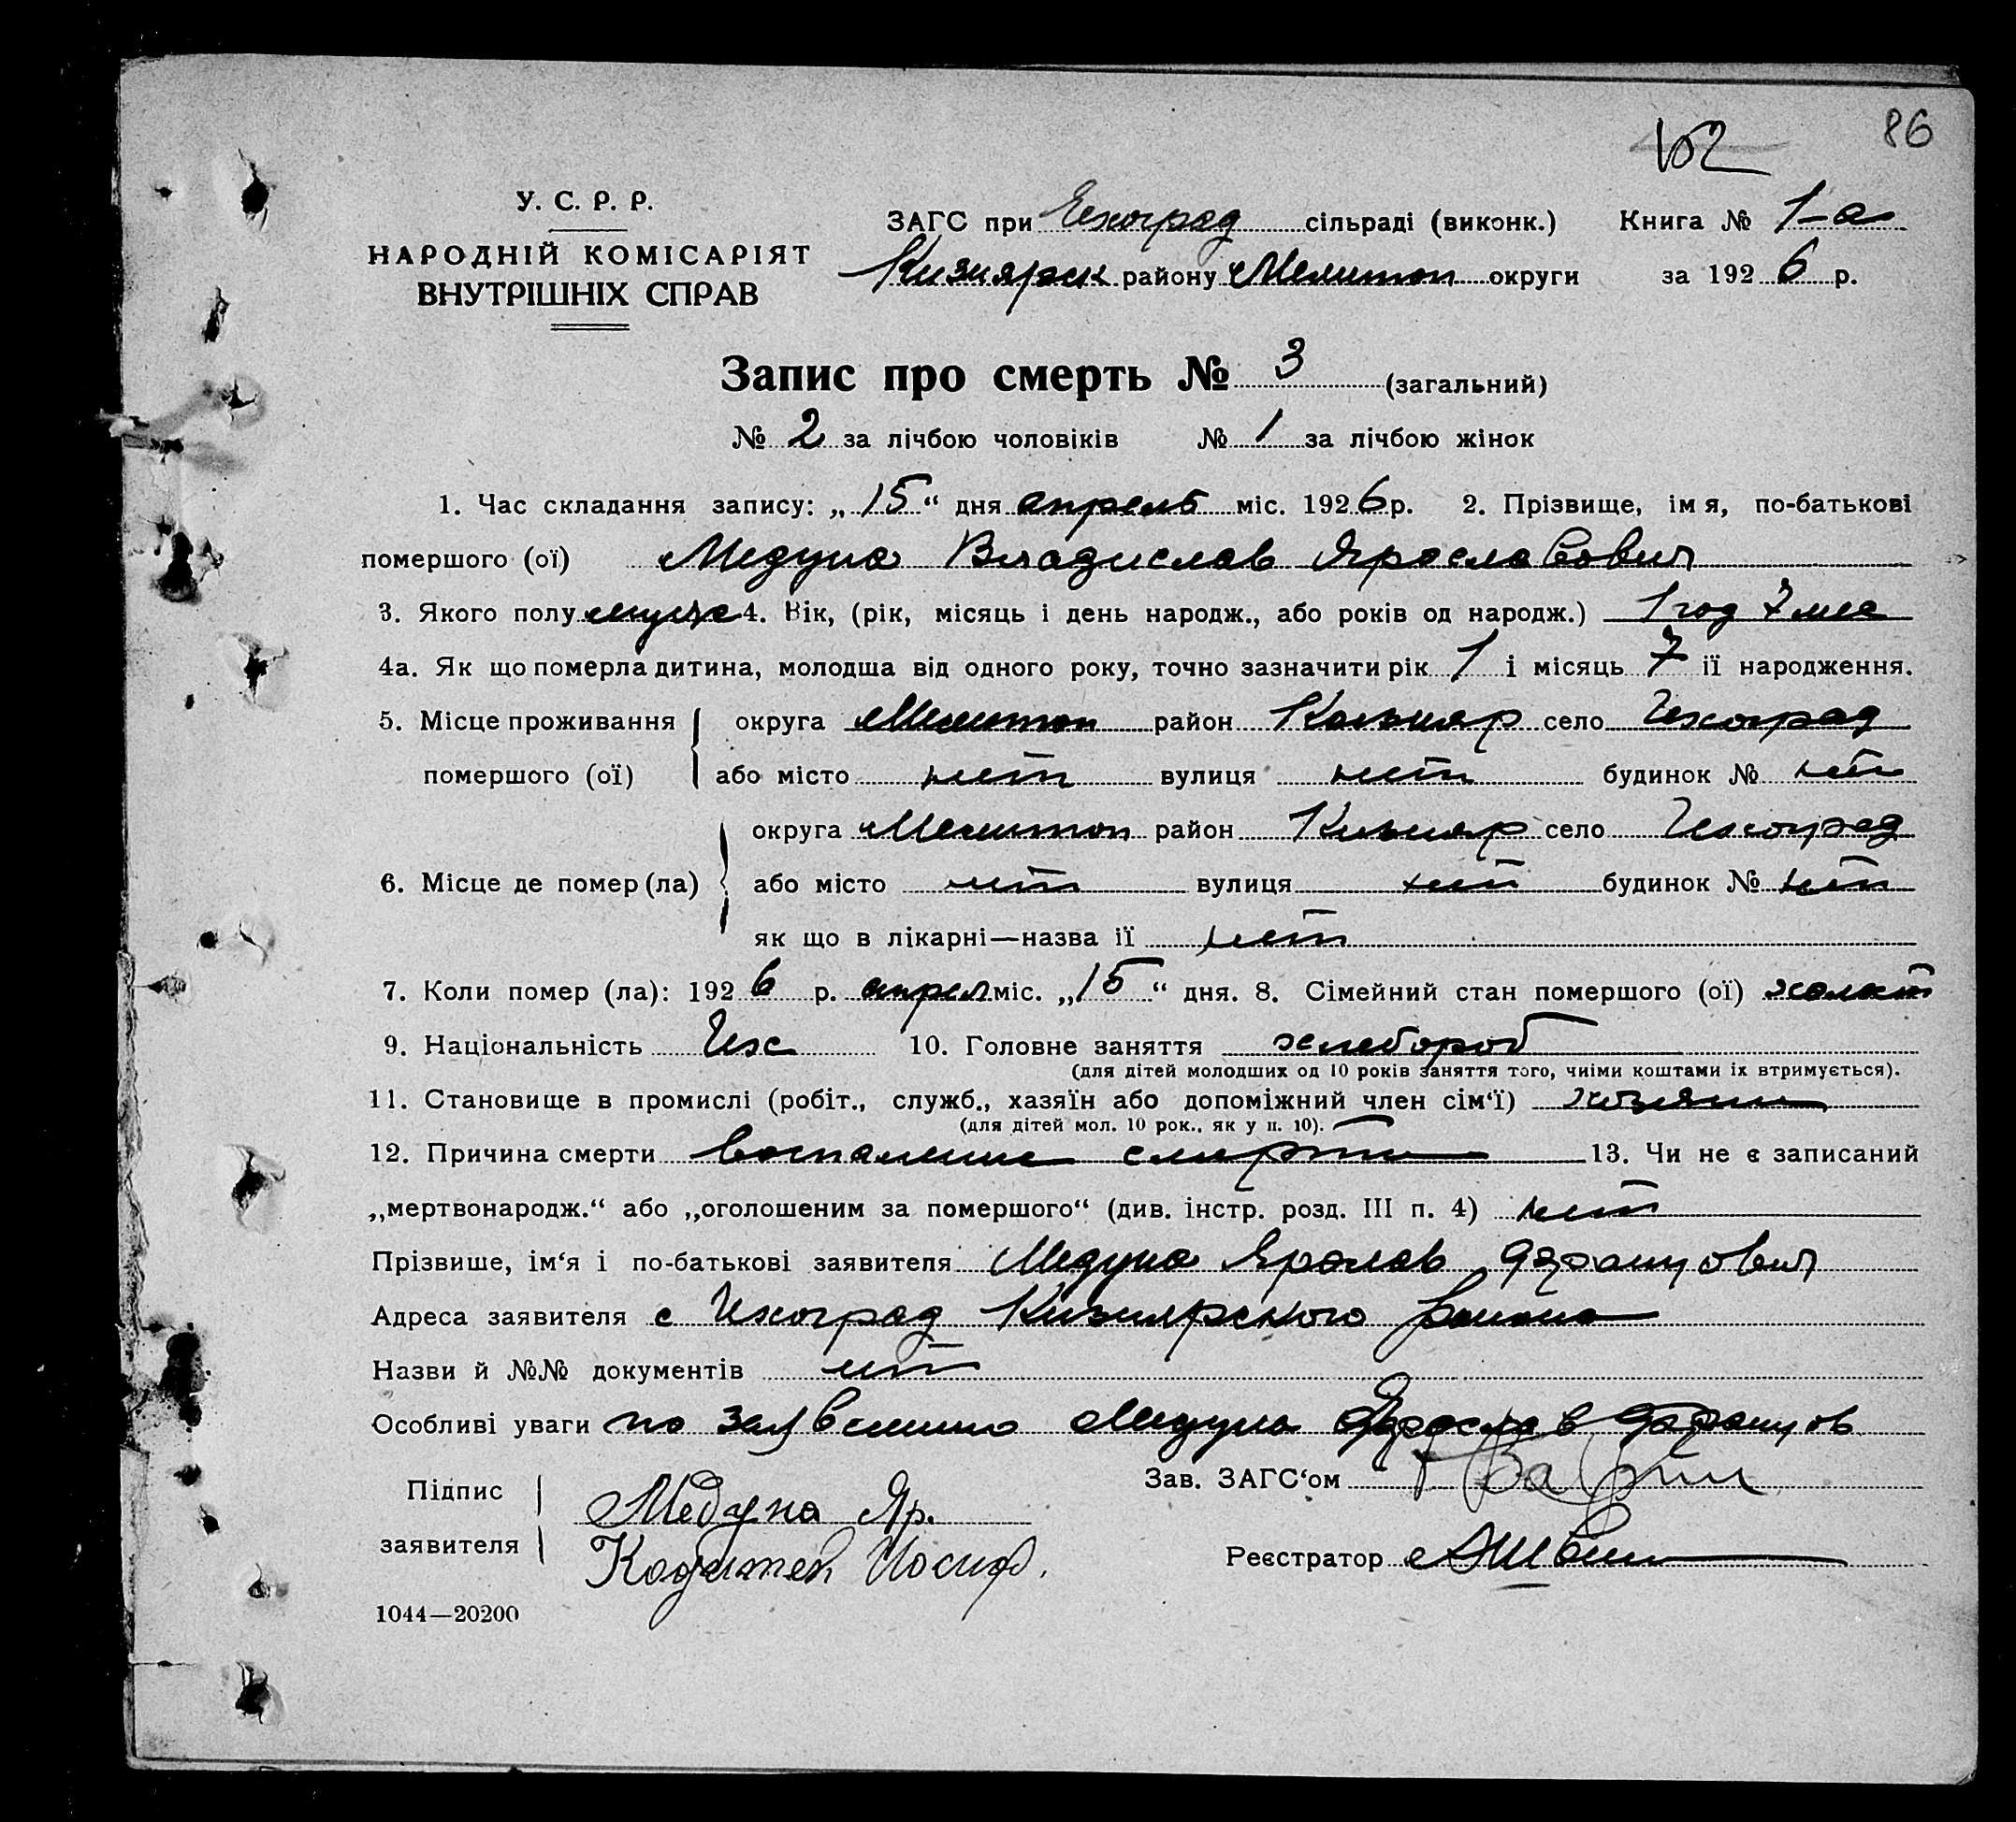 102 86
У. С. Р. Р.
НАРОДНІЙ КОМІСАРІЯТ
ВНУТРІШНІХ СПРАВ
ЗАГС при Чехоград сільраді (виконк.) Книга № 1-а
Кизиярск району Мелитоп округи за 1926 р.
Запис про смерть № 3 (загальний)
№ 2 за лічбою чоловіків № 1 за лічбою жінок
1. Час складання запису: „15“ дня апрель міс. 1926 р. 2. Прізвище, імя, по-батькові
помершого (ої) Медуна Владислав Ярославович
3. Якого полу мужс 4. Вік, (рік, місяць і день народж., або років од народж.) 1 год 7 мес
4а. Як що померла дитина, молодша від одного року, точно зазначити рік 1 і місяць 7 її народження.
5. Місце проживання округа Мелитоп район Кизияр село Чехоград
помершого (ої) або місто нет вулиця нет будинок № нет
округа Мелитоп район Кизияр село Чехоград
6. Місце де помер (ла) або місто нет вулиця нет будинок № нет
як що в лікарні—назва її нет
7. Коли помер (ла): 1926 р. апрел міс. „15“ дня. 8. Сімейний стан помершого (ої) холост
9. Національність Чех 10. Головне заняття хлебороб
(для дітей молодших од 10 років заняття того, чиїми коштами їх втримується).
11. Становище в промислі (робіт., служб., хазяїн або допоміжний член сім‘ї) хозяин
(для дітей мол. 10 рок., як у п. 10).
12. Причина смерти Воспаление 13. Чи не є записаний
„мертвонародж.“ або „оголошеним за помершого“ (див. інстр. розд. III п. 4) нет
Прізвише, ім‘я і по-батькові заявителя Медуна
Адреса заявителя с Чехоград Кизиярского района
Назви й №№ документів нет
Особливі уваги по заявлению Медуна Ярослав
Підпис Медуна Яр. Зав. ЗАГС‘ом
заявителя Иосиф. Реєстратор
1044—20200